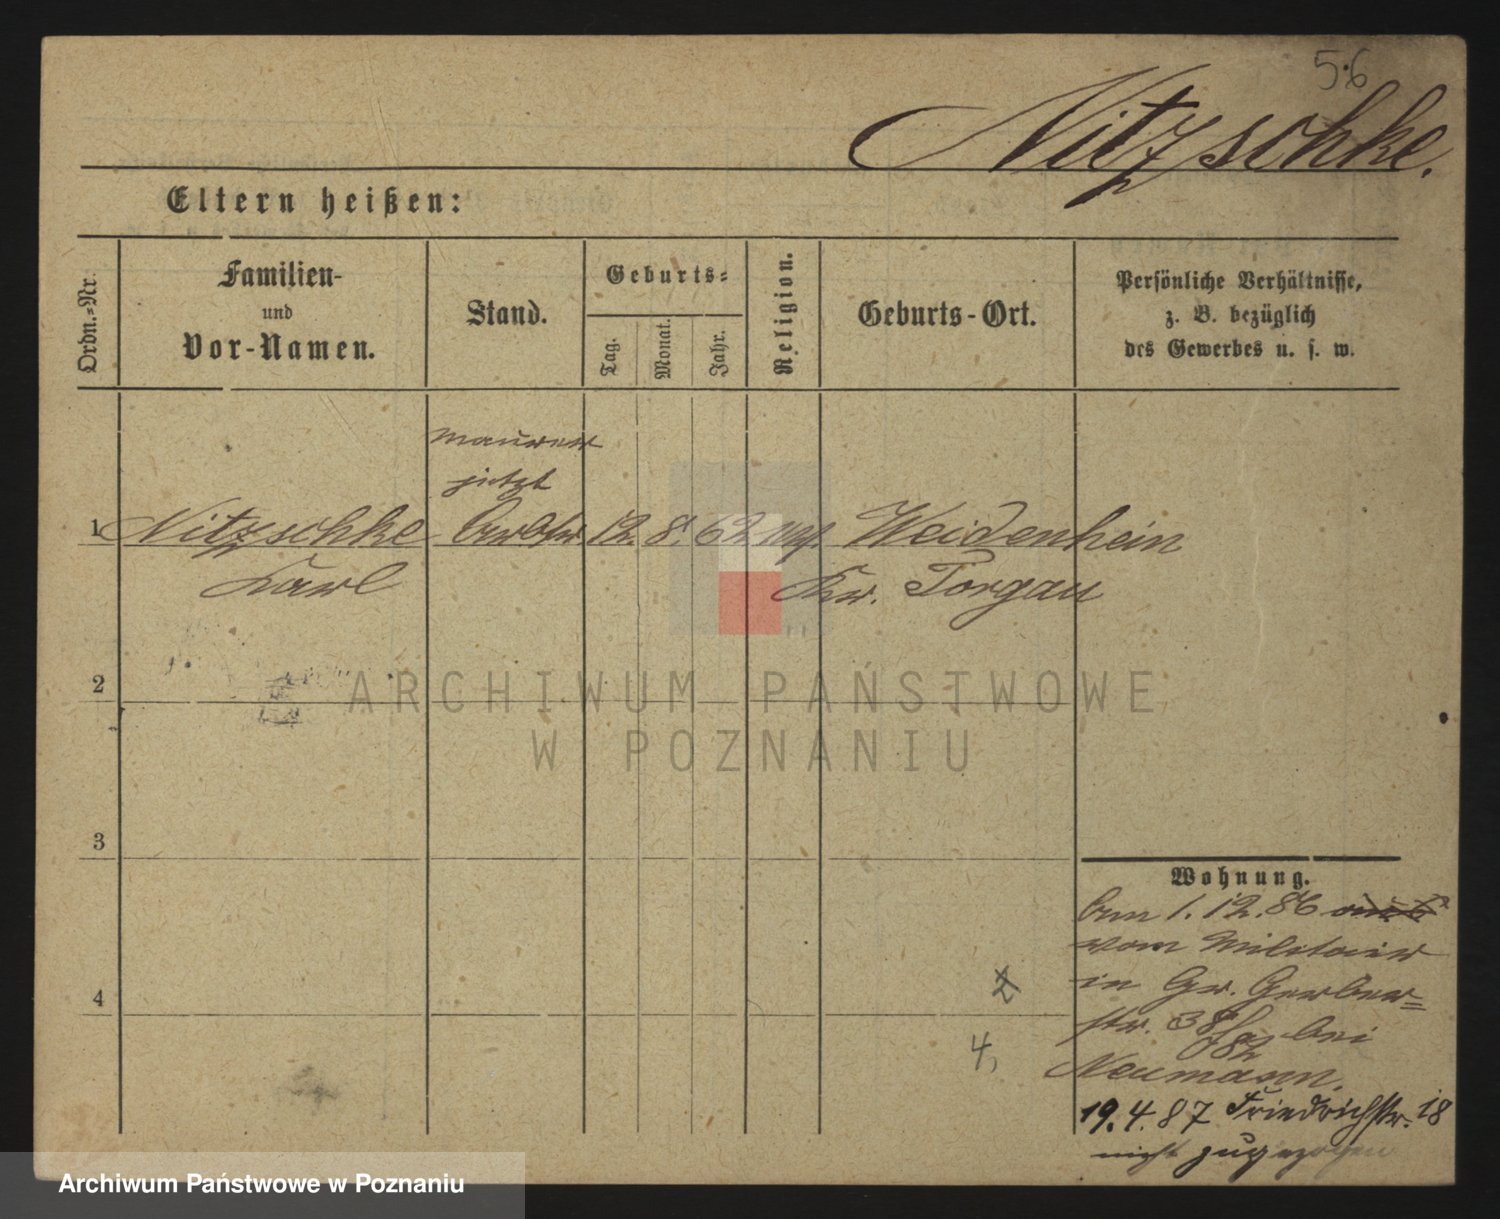 56
Nitzschke.
Eltern heißen:
Ordn.-Nr.
Familien-
und
Vor-Namen.
Stand.
Geburts-
Tag.
Monat.
Jahr.
Religion.
Geburts-Ort.
Persönliche Verhältnisse,
z. B. bezüglich
des Gewerbes u. s. w.
maurer
jetzt
1 Nitzschke Arbtr. 12. 8. 62 Weidenhein
Karl Kr. Torgau
2
ARCHIWUM PAŃSTWOWE
W POZNANIU
3
Wohnung.
Am 1. 12. 86
vom Militair
in Gr. Gerber-
4
str. 38 bei
4,
Neumann.
19. 4. 87 Friedrichstr. 18
nicht zugezogen
Archiwum Państwowe w Poznaniu